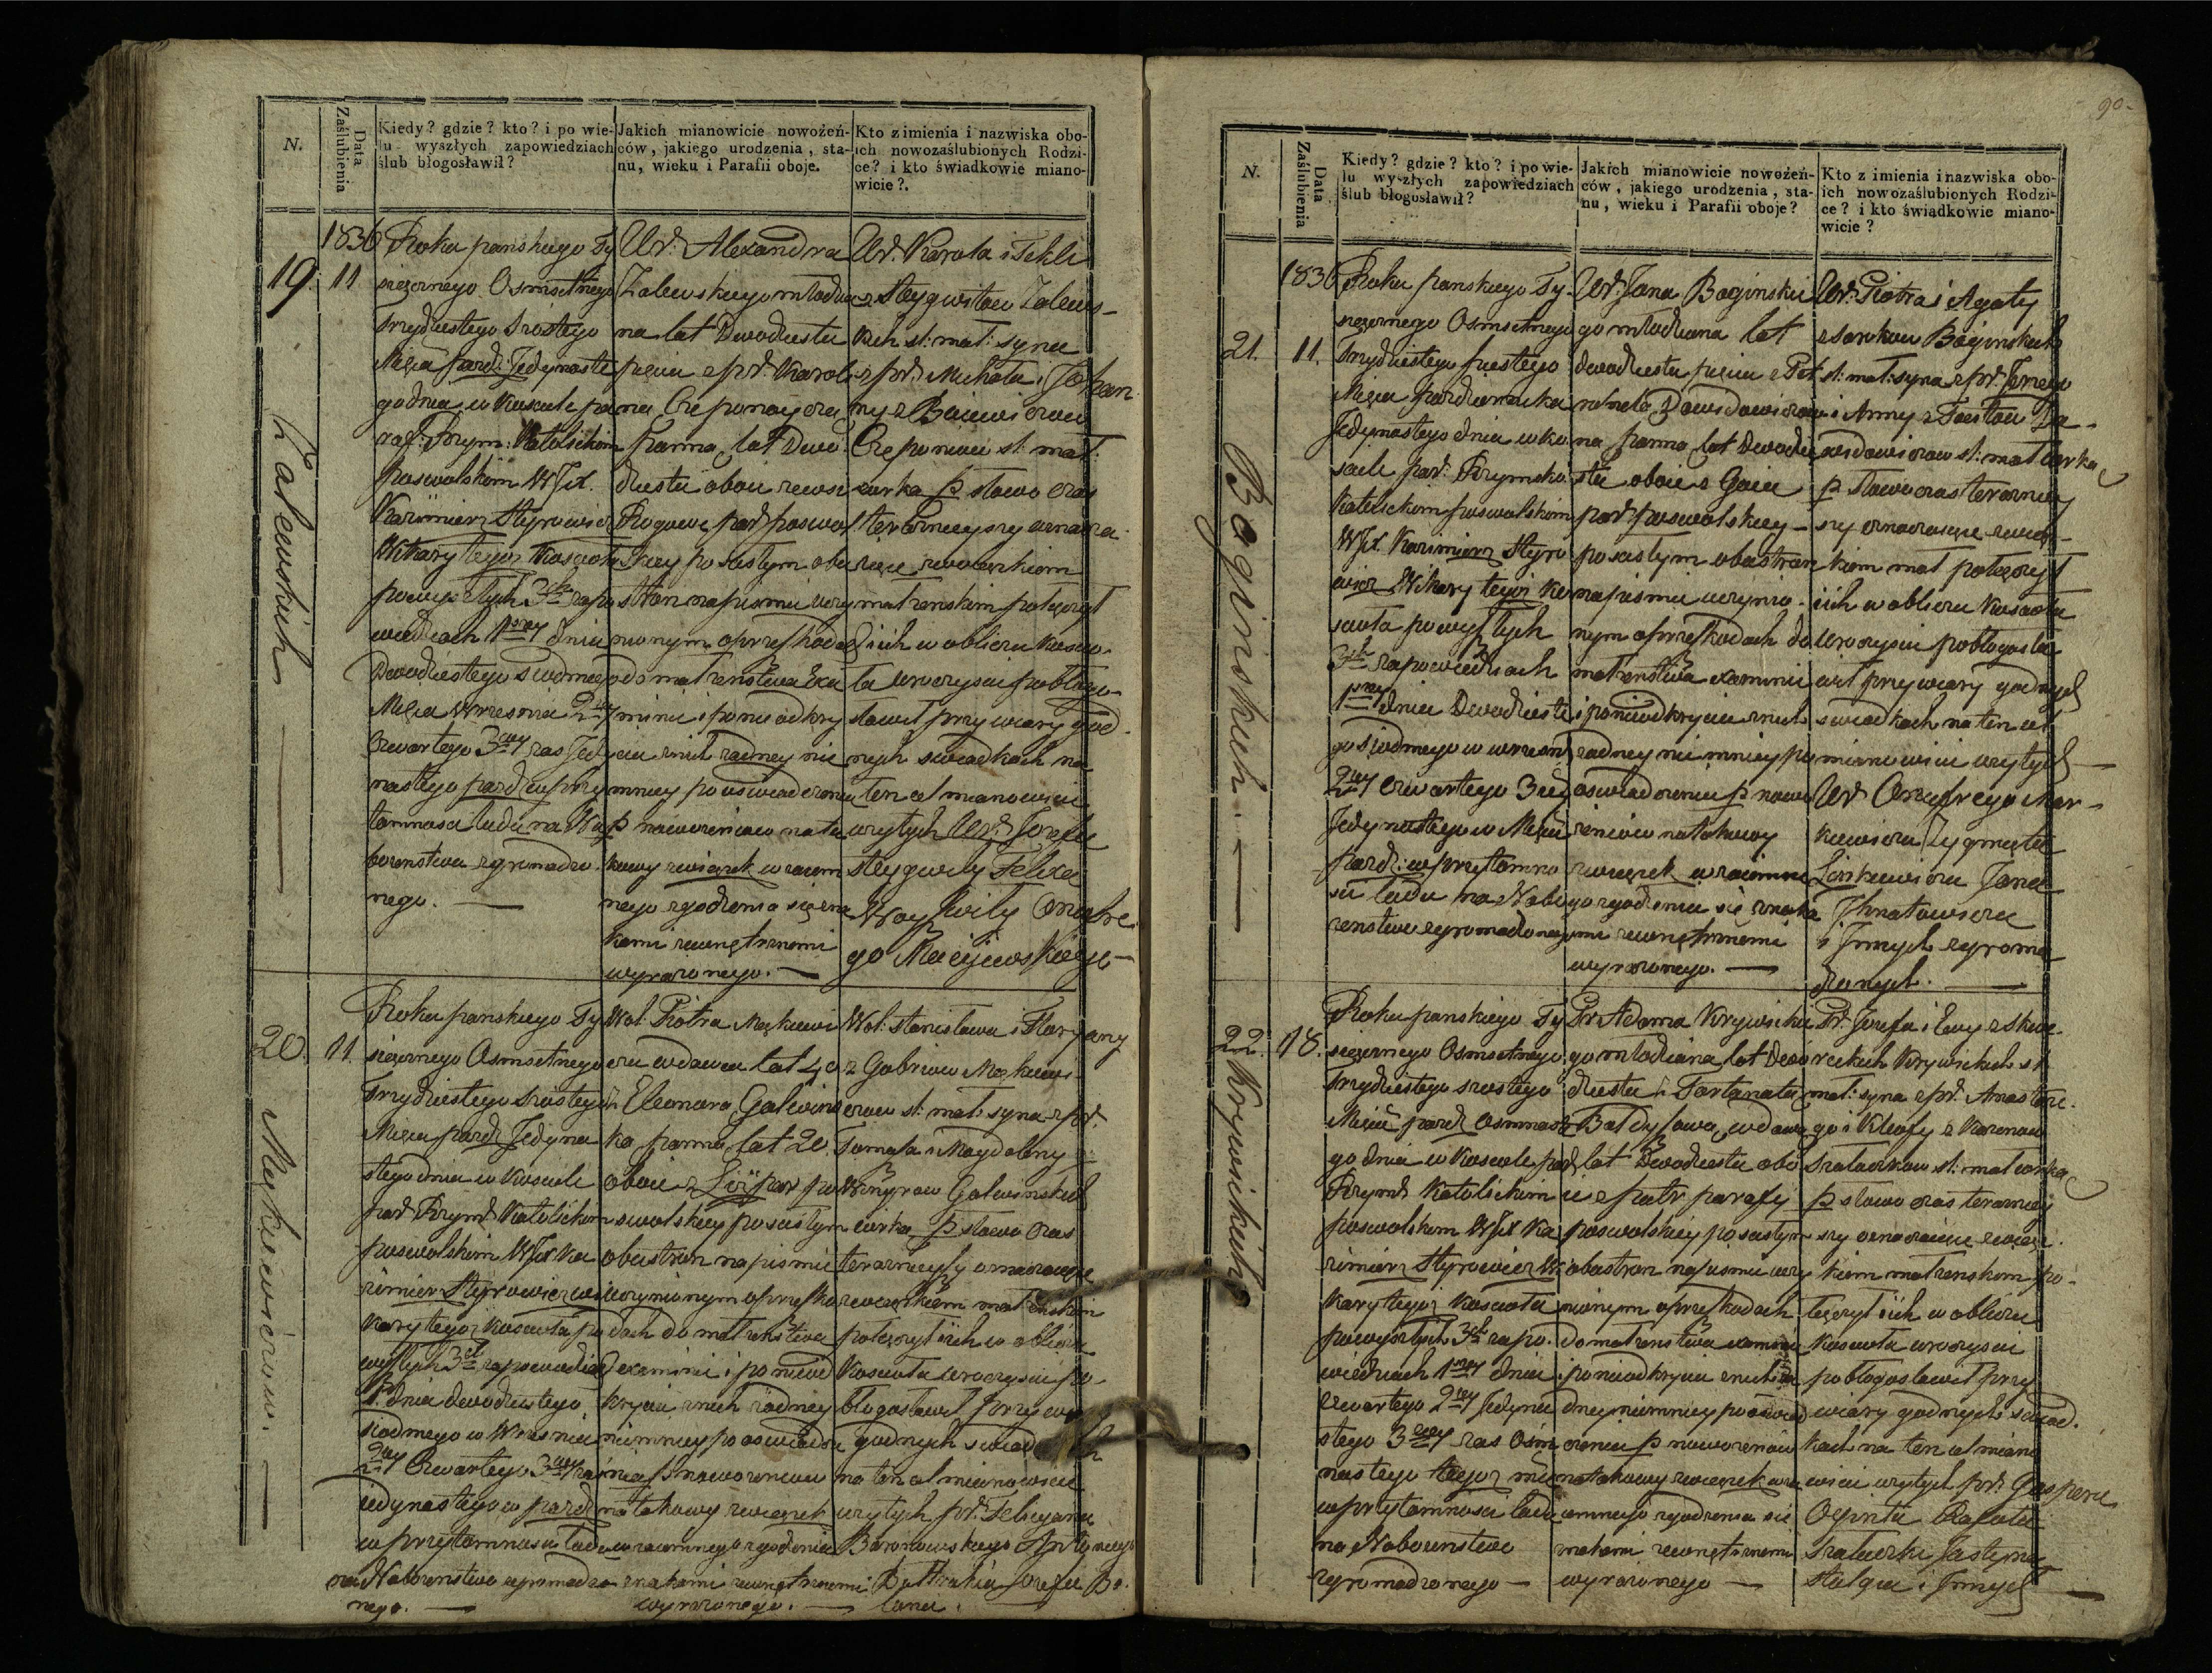 90.
N.
Data Zaślubienia
Kiedy? gdzie? kto? i po wie-
lu wyszłych zapowiedziach
ślub błogosławił?
Jakich mianowicie nowożeń-
ców, jakiego urodzenia, sta-
nu, wieku i Parafii oboje.
Kto z imienia i nazwiska obo-
ich nowozaślubionych Rodzi-
ce? i kto świadkowie miano-
wicie?.
19.
Zalewskich
1836
11
Roku panskiego Ty
sięcznego Osmsetnego
Trzydziestego Szostego
Mięca Pazdź: Jedynaste
go dnia w Kosciele pa
raf: Rzym: Katolickim
poswolskim WJX.
Kazimierz Styrowicz
Wikary tegoż Koscioła
powyszłych 3ch zapo
wiedziach 1szey dnia
Dwudziestego siodmego
Mięca Wrzesnia 2giey
Czwartego 3ciey zas Jedy
nastego pazdź w przy
tomnosci ludu na Na
bożenstwa zgromadzo
nego.
Ur. Alexandra
Zalewskiego młodzia
na lat Dwudziestu
pięciu z pn. Karoli
ną Czeponayczą
Panną lat Dwu
dziestu oboie z wsi
Rogowę par poswol
skiey po scisłym obu
stron na pismie uczy
nionym o przeszkodach
do małżenstwa exa
minie i po nieodkry
ciu znich żadney nie
mniey po oswiadczeniu
p nowożencow na ta
kowy związek wzaiem
nego zgodzenia się zna
kami zewnętrznemi
wyrażonego.
Ur. Karola i Tekli
z Steygwiłow Zalews-
kich sl: mał: syna
z pn. Michała i Johan
ny z Baiewiczow
Czeponiow sl: mał:
corka p słowa czas
teraznieyszy oznacza
iące związkiem
małżenskim połączył
i ich w obliczu Koscio
ła uroczyscie pobłogo-
sławił przy wiary god
nych swiadkach na
ten cel mianowicie
wzytych Ur. Jozefa
Steygwiły Felixa
Woyszwiły Onufre
go Maciejewskiego
20.
Mackiewiczow.
11.
Roku panskiego Ty
sięcznego Osmsetnego
Trzydziestego Szostego
Mięca pazdź Jedyna
stego dnia w Kosciele
par Rzyms Katolickim
poswolskim WJX Ka
zimierz Styrowicz wi
kary tegoż Koscioła po
wyszłych 3ch zapowiedziach
1. dnia dwudziestego
siodmego w Wrzesniu
2giey Czwartego 3ciey zas
iedynastego w pazdź
w przytomnosci ludu
na Nabożenstwo zgromadzo
nego.
Wol. Piotra Mackiewi
cza wdowca lat 40
z Eleonorą Galwins
ką panną lat 20.
oboie z par po
swolskiey po scisłym
obustron na pismie
uczynionym o przeszko
dach do małżenstwa
examinie i po nieod
kryciu znich żadney
niemniey po oswiadcze
nia p nowożencow
na takowy związek
wzaiemnego zgodzenia
znakami zewnętrznemi
wyrażonego.
Wol. Stanisława i Floryany
z Gabriow Mackiewi
czow sl: mał: syna z pr.
Tomasza i Magdaleny
Galwinskich
corka p słowa czas
teraznieyszy oznaczaiące
związkiem małżenskim
połączył i ich w obliczu
Koscioła uroczyscie po-
błogosławił przy wia
godnych swiad
na ten cel mianowicie
wzytych pr. Felicyana
Baranowskiego
Jozefa
N.
Data Zaślubienia
Kiedy? gdzie? kto? i po wie-
lu wyszłych zapowiedziach
ślub błogosławił?
Jakich mianowicie nowożeń-
ców, jakiego urodzenia, sta-
nu, wieku i Parafii oboje?
Kto z imienia i nazwiska obo-
ich nowozaślubionych Rodzi-
ce? i kto świadkowie miano-
wicie?
21.
Baginskich.
1836
11.
Roku panskiego Ty-
sięcznego Osmsetnego
Trzydziestego szostego
Mięca pazdziernika
Jedynastego dnia w ko
sciele par. Rzymsko
Katolickim poswolskim
WJX. Kazimierz Styro
wicz Wikary tegoż Ko
scioła powyszłych
3ch zapowiedziach
1szey dnia Dwudzieste
go siodmego w wrzesniu
2giey czwartego 3ciey
Jedynastego w Mięcu
pazdź: w przytomno
sci ludu na Nabo
żenstwo zgromadzonego
Ur. Jana Baginskie
go młodziana lat
dwudziestu pięciu z Pet
ronelą Dowidowiczow
ną panną lat dwudzie
stu oboie z Gaiu
par poswolskiey
po scisłym obustron
na pismie uczynio-
nym o przeszkodach do
małżenstwa examinie
i po nieodkryciu znich
żadney niemniey po
oswiadczeniu p nowo
żencow na takowy
związek wzaiemne
go zgodzenia się znaka
mi zewnętrznemi
wyrażonego.
Ur. Piotra i Agaty
Baginskich
sl: mał: syna z pr. Jerzego
i Anny z Do-
widowiczow sl: mał corka
p słowa czas teraznie
szy oznaczaiące zwiąs-
kiem mał połączył
i ich w obliczu Koscioła
Uroczyscie pobłogosła
wił przy wiary godnych
swiadkach na ten cel
mianowicie wzytych
Ur. Onufrego Mar-
kiewicza Zygmunta
Linkiewicza Jana
Ihnatowicza
i Innych zgroma
dzonych.
22.
Krzywickich
18.
Roku panskiego Ty
sięcznego Osmsetnego
Trzydziestego szostego
Mięca pazdź Osmnaste
go dnia w Kosciele par
Rzyms Katolickim
poswolskim WJX Ka
zimierz Styrowicz Wi
kary tegoż Koscioła
powyszłych 3ch zapo-
wiedziach 1szey dnia
czwartego 2giey Jedyna
stego 3ciey zas Osm
nastego tegoż mca
w przytomnosci ludu
na Nabożenstwo
zgromadzonego
Pr. Adama Krzywickie
go młodziana lat Dwu
dziestu i Fortunatą
wdową
lat Dwudziestu obo
ie z parafy
poswolskiey po scisłym
obustron na pismie uczy
nionym o przeszkodach
do małżenstwa examinie
i po nieodkryciu znich ża
dney niemniey po oswiad
czeniu p nowożencow
na takowy związek wza
iemnego zgodzenia się
znakami zewnętrznemi
wyrażonego
Pr. Jozefa i Ewy z Skwo-
reckich Krzywickich sl
mał: syna z pr. Anastaze-
go i Kleofy z Korenow
Szalewskow sl: mał corka
p słowa czas teraznieiy
szy oznaczaiące związ-
kiem małżenskim po-
łączył i ich w obliczu
Koscioła uroczyscie
pobłogosławił przy
wiary godnych swiad-
kach na ten cel miano
wicie wzytych pr. Gaspera
Oginta Rafała
Justyna
i Innych